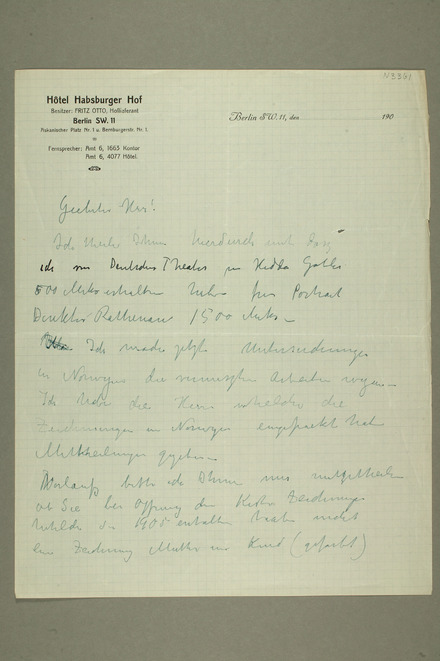 N 3361
Hôtel Habsburger Hof
Besitzer: FRITZ OTTO, Hoflieferant
Berlin SW. 11
Askanischer Platz Nr. 1 u. Bernburgerstr. Nr. 1.
Fernsprecher: Amt 6, 1665 Kontor
Amt 6, 4077 Hôtel.
Berlin SW. 11, den 190
Geehrter Herr!
Ich theile Ihnen hierdurch mit dass
ich von Deutsches Theater für Hedda Gabler
500 Mark erhalten habe für Portrait
Direktor Rathenau 1500 Mark –
Ich mache jetzt
in Norwegen die Arbeiten wegen –
Ich habe die Herrn welche die
Zeichnungen in Norwegen eingepackt hat
Mittheilungen gegeben –
bitte ich Ihnen mir mitzutheilen
ob Sie bei Öffnung der Kiste Zeichnungen
welche Sie 1905 erhalten haben nicht
eine Zeichnung Mutter und Kind (gefärbt)